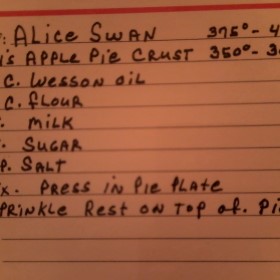 : ALICE SWAN 375° - 4
is APPLE PIE CRUST 350° - 3
C. WESSON OIL
C. FLOUR
. MILK
. SUGAR
P. SALT
ix. PRESS IN PIE PLATE
PRINKLE REST ON TOP OF. Pi